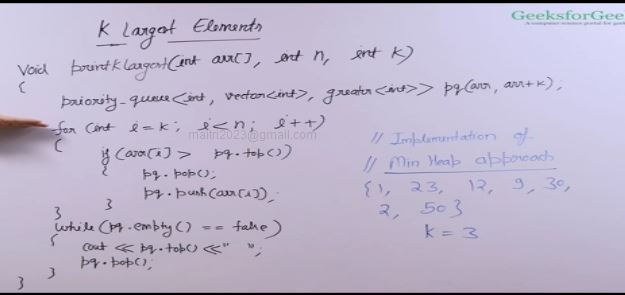 K Largest Elements
GeeksforGee
A computer science portal for geek
void printKLargest(int arr[], int n, int k)
{
priority_queue<int, vector<int>, greater<int>> pq(arr, arr+k);
for (int i=k; i<n; i++)
mailtri2023@gmail.com
{
if (arr[i] > pq.top())
{
pq.pop();
pq.push(arr[i]);
}
}
while(pq.empty() == false)
{
cout << pq.top() << " ";
pq.pop();
}
}
// Implementation of
// Min Heap approach
{1, 23, 12, 9, 30,
2, 50}
K = 3